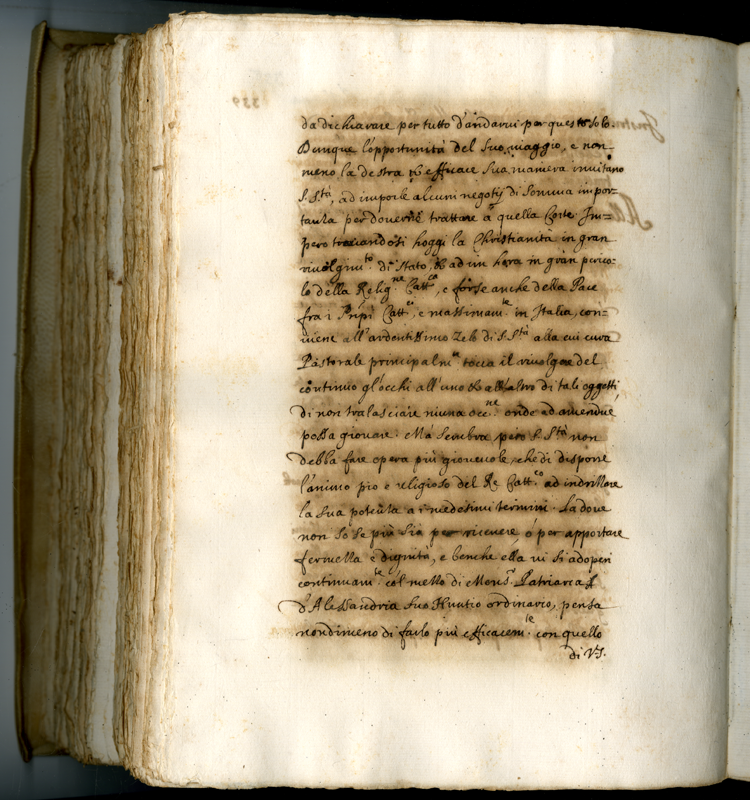 da dichiarare per tutto d'andarui per questo solo.
Dunque l'opportunità del suo uiaggio, e non
meno la destra, et efficace sua maniera inuitano
S. S.tà, ad imporle alcuni negotij di somma impor-
tanza per douersi trattare à quella Corte. Im=
pero trouandosi hoggi la Christianità in gran
riuolgim.to di stato, et ad un hora in gran perico-
lo della Relig.ne Catt.ca, e forse anche della Pace
fra i Prīpi Catt.ci, e massimam.te in Italia, con-
uiene all'ardentissimo zelo di S. S.tà alla cui cura
Pastorale principalm.te tocca il riuolgere del
continuo gl'occhi all'uno et all'altro di tali oggetti,
di non tralasciare niuna occ.ne onde ad amendue
possa giouare. Mà sembra, però S. S.tà non
debba fare opera più gioueuole, che di disporre
l'animo pio e religioso del Re Catt.co ad indrizzare
la sua potenza a i medesimi termini. La doue
non so se più sia per riceuere, ó per apportare
fermezza e dignità, e benche ella ui si adoperi
continuam.te col mezzo di Mons.r Patriarca
d'Alessandria suo Nuntio ordinario, pensa
nondimeno di farlo più efficacem.te con quello
di V.S.